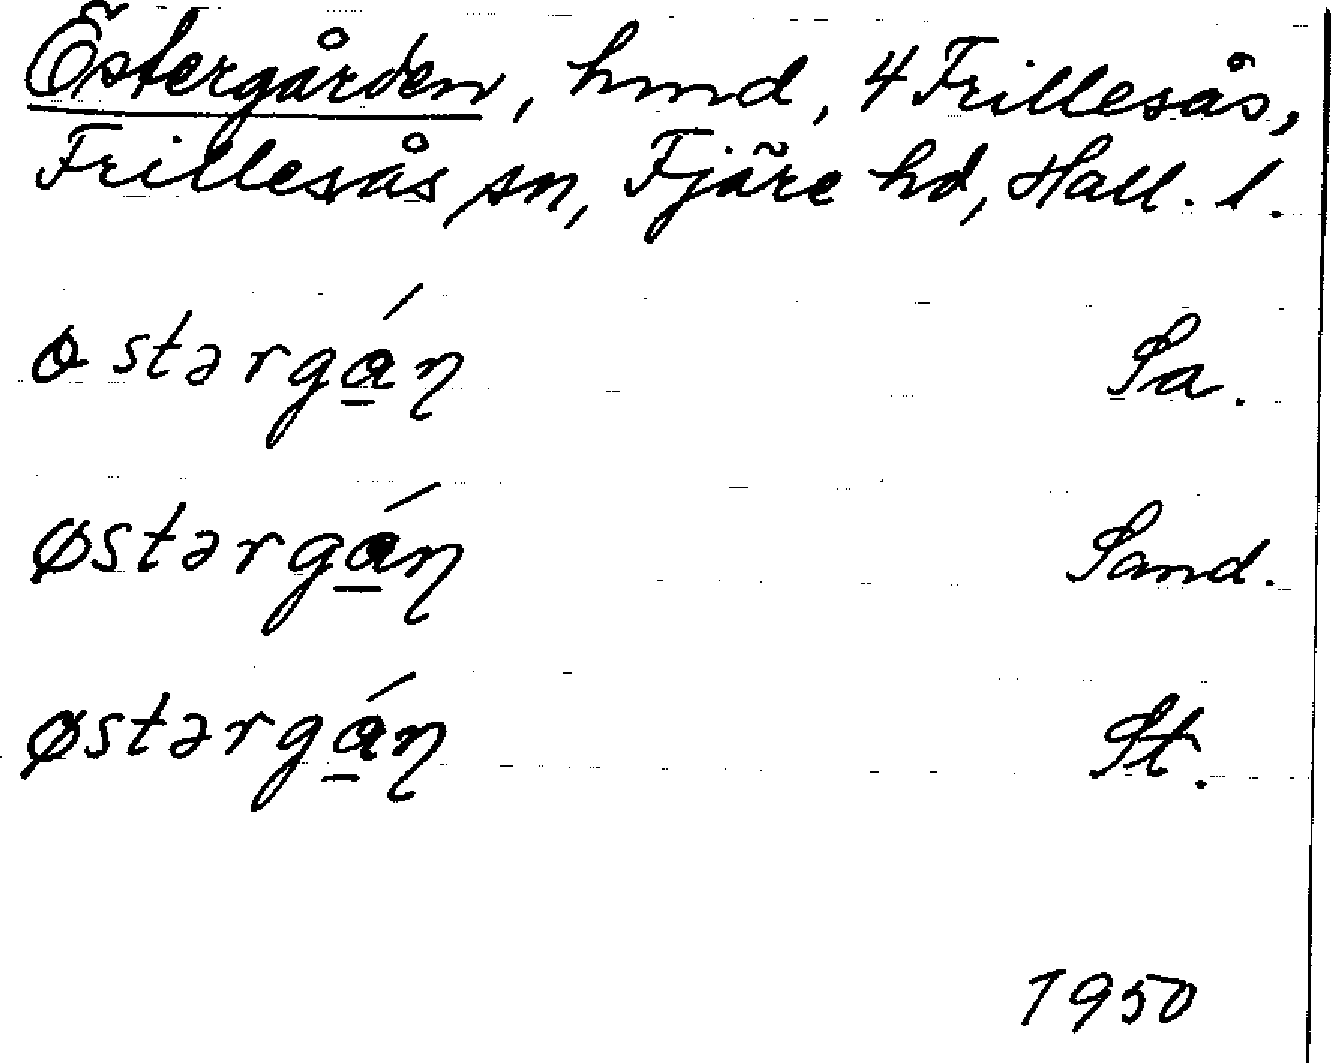 Östergården, hmd, 4 Frillesås,
Frillesås sn, Fjäre hd, Hall. l.
ostərgán Sa.
østərgán Sand.
østərgán St.
1950